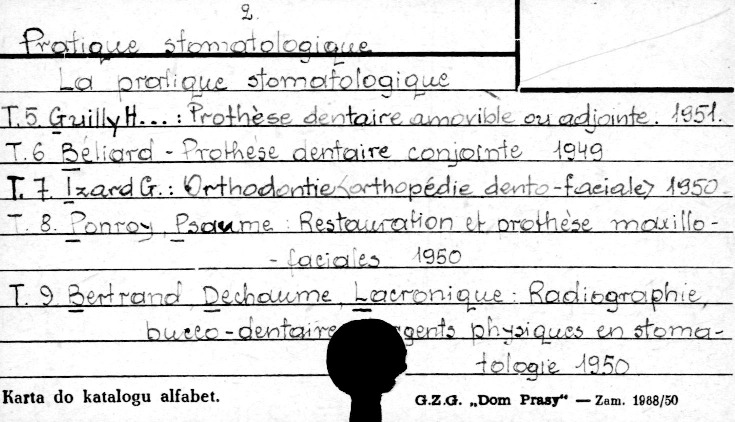 2.
Pratique stomatologique
La pratique stomatologique
T.5. Guilly H...: Prothèse dentaire amovible ou adjointe. 1951.
T.6 Béliard - Prothèse dentaire conjointe 1949
T.7. Izard G.: Orthodontie <orthopédie dento-faciale> 1950.
T. 8. Ponroy, Psaume : Restauration et prothèse maxillo-
- faciales 1950
T. 9 Bertrand, Dechaume, Lacronique : Radiographie,
bucco-dentaire agents physiques en stoma-
tologie 1950
Karta do katalogu alfabet.
G.Z.G. „Dom Prasy“ — Zam. 1988/50